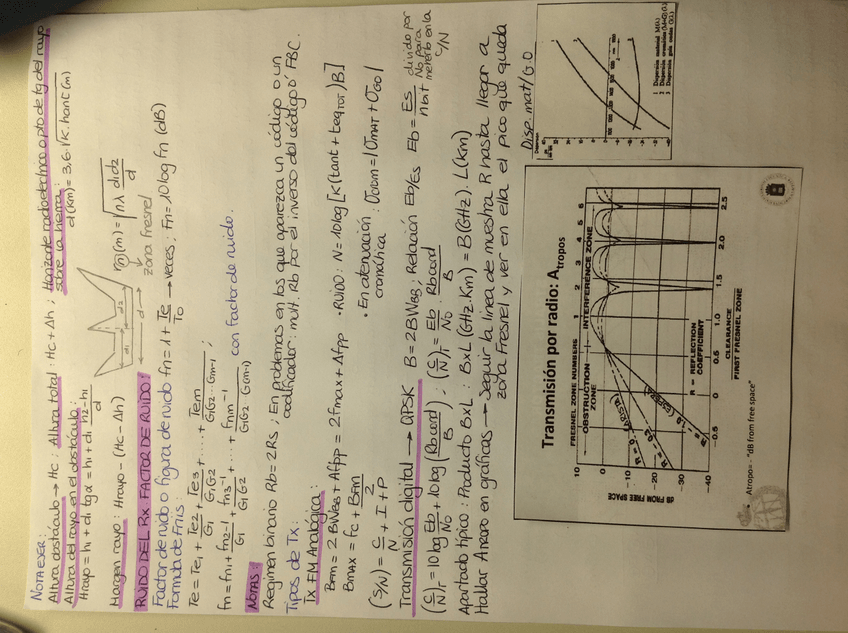 NOTA EJER:
Altura obstáculo → Hc ; Altura total : Hc + Δh ; Horizonte radioeléctrico o pto de tg del rayo
sobre la tierra :
Altura del rayo en el obstáculo :
d(km) = 3,6·√K·hant (m)
Hrayo = h1 + d1 tgα = h1 + d1 (h2-h1)/d
rn(m) = √(nλ d1d2/d)
zona fresnel
d1
d2
d
Margen rayo : Hrayo - (Hc - Δh)
RUIDO DEL RX. FACTOR DE RUIDO:
Factor de ruido o figura de ruido fn = 1 + Te/To → veces ; Fn = 10 log fn (dB)
Formula de Friis :
Te = Te1 + Te2/G1 + Te3/G1G2 + ... + Tem/G1G2...Gm-1 ;
fn = fn1 + (fn2-1)/G1 + (fn3-1)/G1G2 + ... + (fnm-1)/G1G2...G(m-1) con factor de ruido.
NOTAS :
Regimen binario Rb = 2Rs ; En problemas en los que aparezca un código o un
codificador : mult. Rb por el inverso del código o' FBC.
Tipos de Tx :
Tx FM Analógica :
BFM = 2 BWBB + Δfpp = 2fmax + Δfpp • RUIDO : N = 10log [K(tant + teqTOT)B]
BMAX = fc + BFM/2
• En atenuación cromática : σDOM = |σMAT + σGO|
(S/N) = C/N + I + P
Transmisión digital → QPSK B = 2BWBB ; Relación Eb/Es Eb = Es/nbit dividido por No para meterlo en la C/N
(C/N)T = 10log Eb/No + 10log (Rbcod/B) ; (C/N)T = Eb/No · Rbcod/B
Apartado típico : Producto BxL : BxL (GHz.Km) = B(GHz) . L(km)
Hallar Atropo en gráficas → Seguir la linea de muestra R hasta llegar a
zona Fresnel y ver en ella el pico que queda
Disp. mat/G.O
Transmisión por radio: Atropos
FRESNEL ZONE NUMBERS
1 2 3 4 5 6
OBSTRUCTION ZONE
INTERFERENCE ZONE
dB FROM FREE SPACE
10
0
-10
-20
-30
-40
R = REFLECTION
COEFFICIENT
-0.5 0 0.5 1.0 1.5 2.0 2.5
CLEARANCE
FIRST FRESNEL ZONE
• Atropo= - "dB from free space"